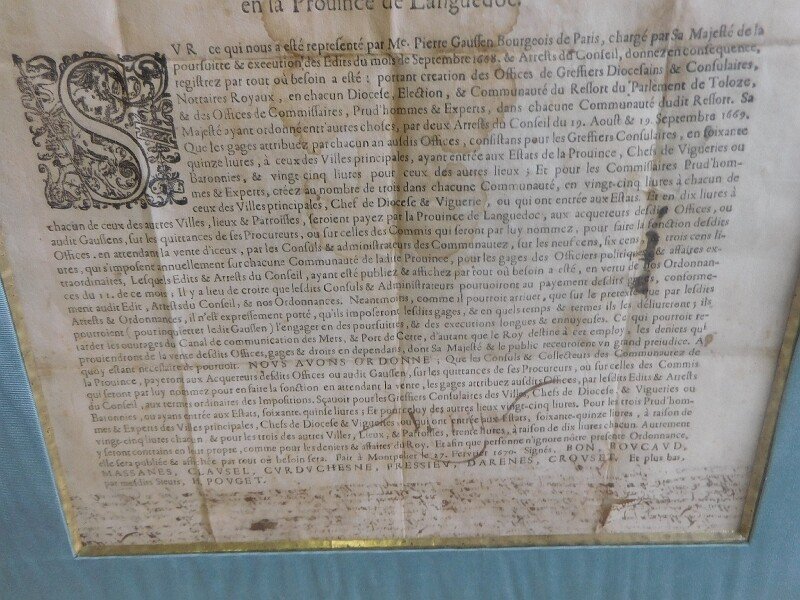 en la Prouince de Languedoc.
SVR ce qui nous a esté representé par Me. Pierre Gaussen Bourgeois de Paris, chargé par Sa Majesté de la
poursuitte & execution des Edits du mois de Septembre 1668. & Arrests du Conseil, donnez en consequence,
registrez par tout où besoin a esté; portant creation des Offices de Greffiers Diocesains & Consulaires,
Nottaires Royaux, en chacun Diocese, Election, & Communauté du Ressort du Parlement de Toloze,
& des Offices de Commissaires, Prud'hommes & Experts, dans chacune Communauté dudit Ressort. Sa
Majesté ayant ordonné entr'autres choses, par deux Arrests du Conseil du 19. Aoust & 19. Septembre 1669.
Que les gages attribuez par chacun an ausdits Offices, consistans pour les Greffiers Consulaires, en soixante
quinze liures, à ceux des Villes principales, ayant entrée aux Estats de la Prouince, Chefs de Vigueries ou
Baronnies, & vingt-cinq liures pour ceux des autres lieux; Et pour les Commissaires Prud'hom-
mes & Experts, créez au nombre de trois dans chacune Communauté, en vingt-cinq liures à chacun de
ceux des Villes principales, Chef de Diocese & Viguerie, ou qui ont entrée aux Estats. Et en dix liures à
chacun de ceux des autres Villes, lieux & Parroisses, seroient payez par la Prouince de Languedoc, aux acquereurs desdits Offices, ou
audit Gaussens, sur les quittances de ses Procureurs, ou sur celles des Commis qui seront par luy nommez, pour faire la fonction desdits
Offices, en attendant la vente d'iceux, par les Consuls & administrateurs des Communautez, sur les neuf cens, six cens, trois cens li-
ures, qui s'imposent annuellement sur chacune Communauté de ladite Prouince, pour les gages des Officiers politiques & affaires ex-
traordinaires, Lesquels Edits & Arrests du Conseil, ayant esté publiez & affichez par tout où besoin a esté, en vertu de nos Ordonnan-
ces du 11. de ce mois; Il y a lieu de croire que lesdits Consuls & Administrateurs pouruoiront au payement desdits gages, conforme-
ment audit Edit, Arrests du Conseil, & nos Ordonnances. Neantmoins, comme il pourroit arriuer, que sur le pretexte que par lesdits
Arrests & Ordonnances, il n'est expressement porté, qu'ils imposeront lesdits gages, & en quels temps & termes ils les deliureront; ils
pourroient (pour inquietter ledit Gaussen) l'engager en des poursuites, & des executions longues & ennuyeuses. Ce qui pourroit re-
tarder les outrages du Canal de communication des Mers, & Port de Cette, d'autant que le Roy destine à cet employ, les deniers qui
prouiendront de la vente desdits Offices, gages & droits en dependans, dont Sa Majesté & le public receuroient vn grand prejudice. A
quoy estant necessaire de pouruoir. NOVS AVONS ORDONNE'; Que les Consuls & Collecteurs des Communautez de
la Prouince, payeront aux Acquereurs desdits Offices ou audit Gaussen, sur les quittances de ses Procureurs, ou sur celles des Commis
qui seront par luy nommez pour en faire la fonction en attendant la vente, les gages attribuez ausdits Offices, par lesdits Edits & Arrests
du Conseil, aux termes ordinaires des Impositions. Sçauoir pour les Greffiers Consulaires des Villes, Chefs de Diocese, & Vigueries ou
Baronnies, ou ayans entrée aux Estats, soixante-quinse liures; Et pour ceux des autres lieux vingt-cinq liures. Pour les trois Prud'hom-
mes & Experts des Villes principales, Chefs de Diocese & Vigueries, ou qui ont entrée aux Estats, soixante-quinze liures, à raison de
vingt-cinq liures chacun & pour les trois des autres Villes, Lieux, & Parroisses, trente liures, à raison de dix liures chacun. Autrement
y seront contrains en leur propre, comme pour les deniers & affaires du Roy. Et afin que personne n'ignore nôtre presente Ordonnance,
elle sera publiée & affichée par tout où besoin sera. Fait à Montpelier le 27. Fevrier 1670. Signés, BON, BOVCAVD,
MASSANES, CLAVSEL, CVRDVCHESNE, PRESSIEV, DARENES, CROVSET, Et plus bas,
par mesdits Sieurs, POVGET.